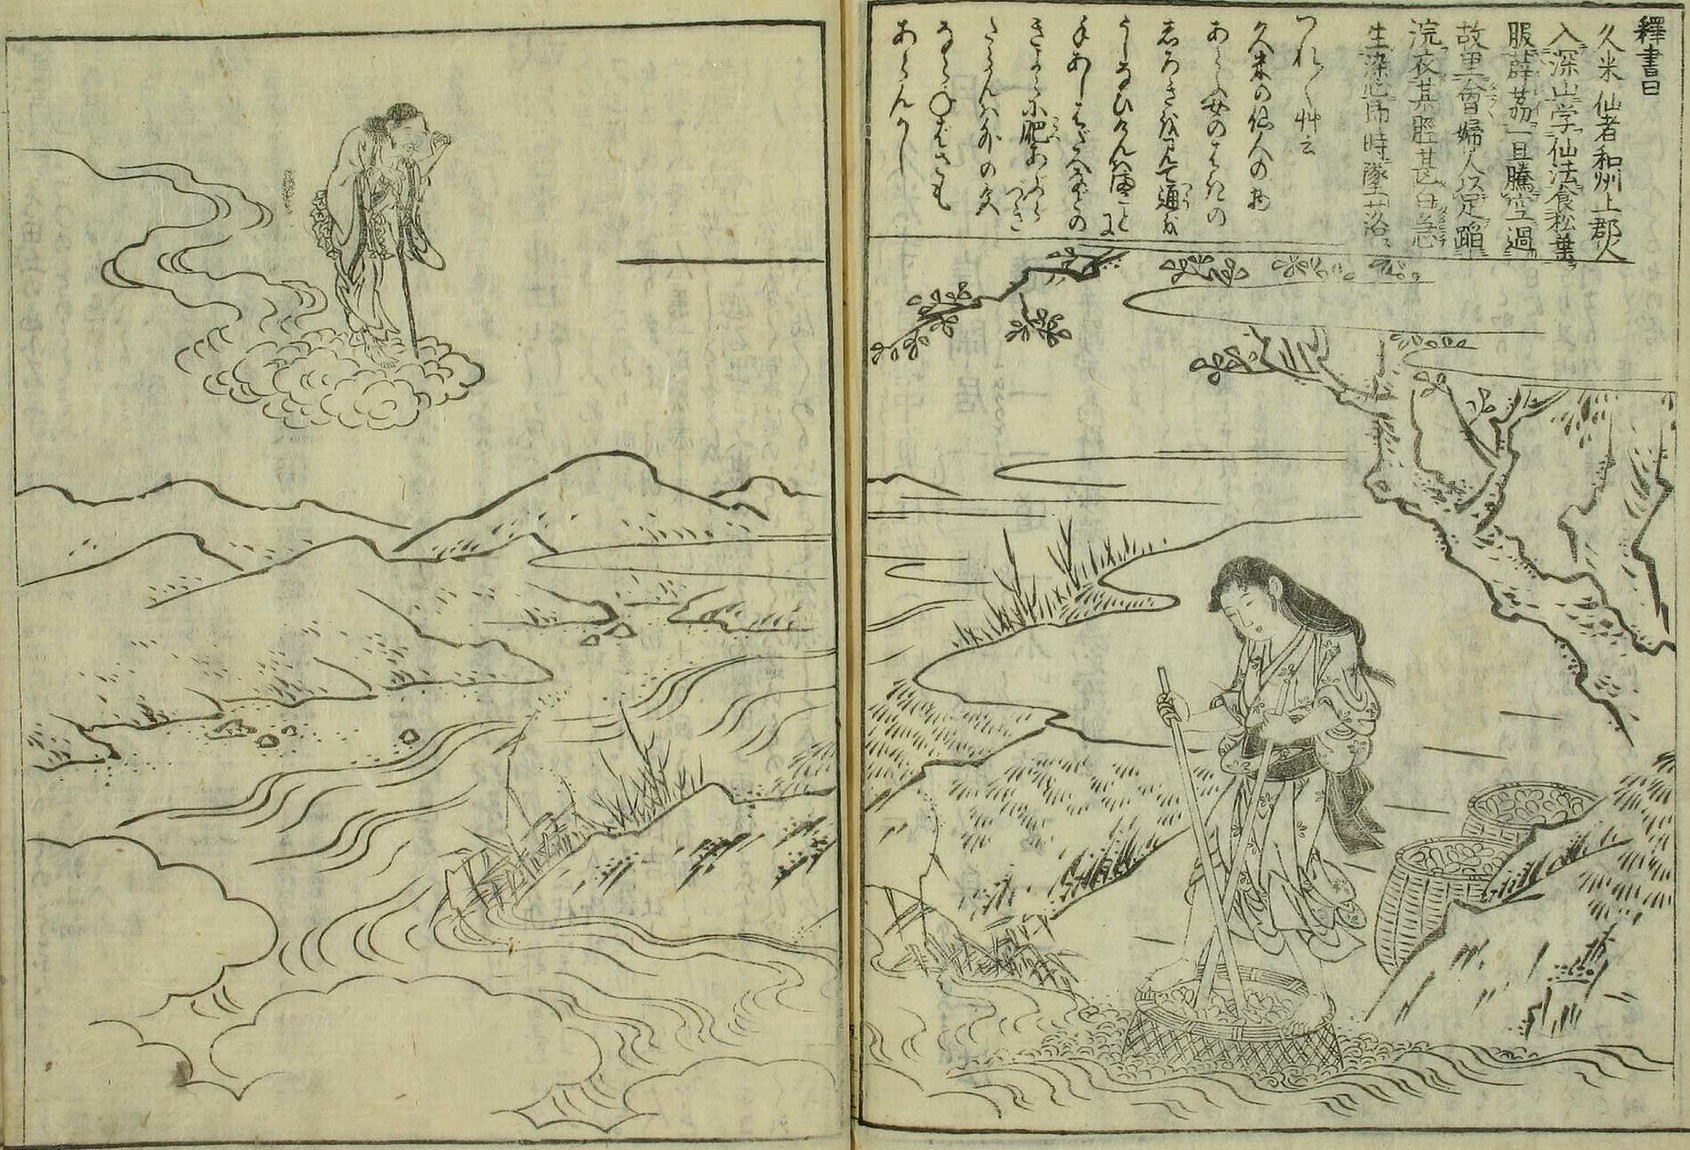 釋書曰
久米仙者和州上郡人
入深山学仙法食松葉
服薜荔一旦騰空過
故里會婦人以足蹈
浣衣其脛甚白忽
生染心即時墜落
つれ〳〵艸云
久米の仙人の物
あらふ女のはぎの
しろきを見て通を
うしなひけんは誠に
手あしはだへなどの
きよらに肥あぶらつき
たらんは外の色
ならねばさも
あらんかし